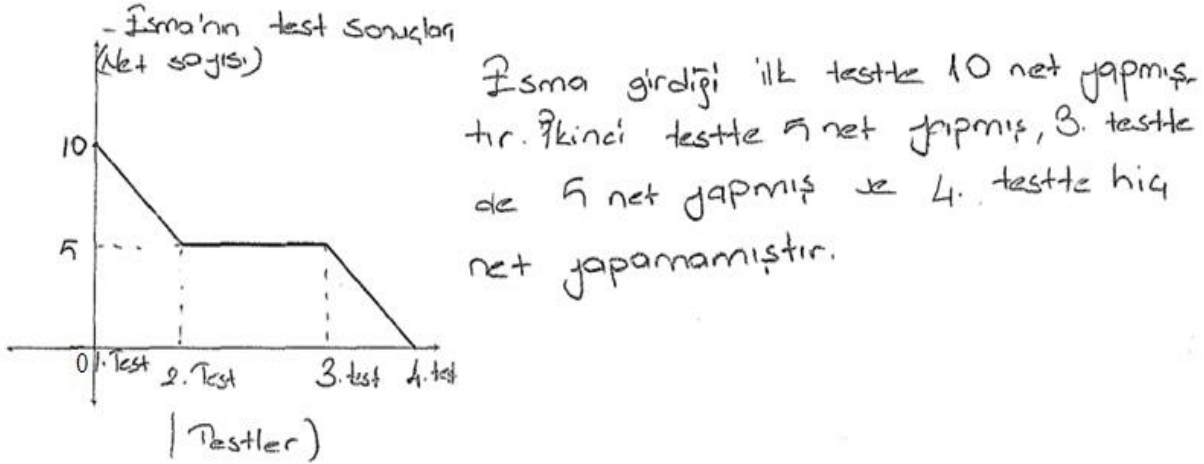 - Esma'nın test sonuçları
(Net sayısı)
10
5
0 1. Test 2. Test 3. test 4. test
(Testler)
Esma girdiği ilk testte 10 net yapmış-
tır. İkinci testte 5 net yapmış, 3. testte
de 5 net yapmış ve 4. testte hiç
net yapamamıştır.